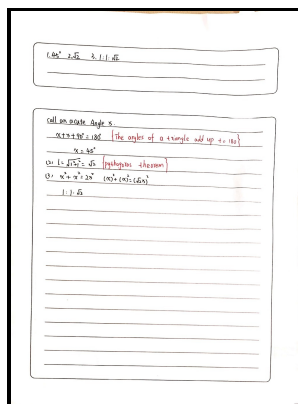 1. 45° 2. √2 3. 1:1:√2
Call an acute Angle x.
x+x+90°=180° [The angles of a triangle add up to 180]
x = 45°
(2) l=√1²+1² = √2 [pythagoras theorem]
(3) x²+x²=2x² (x)²+(x)²=(√2x)²
1:1:√2